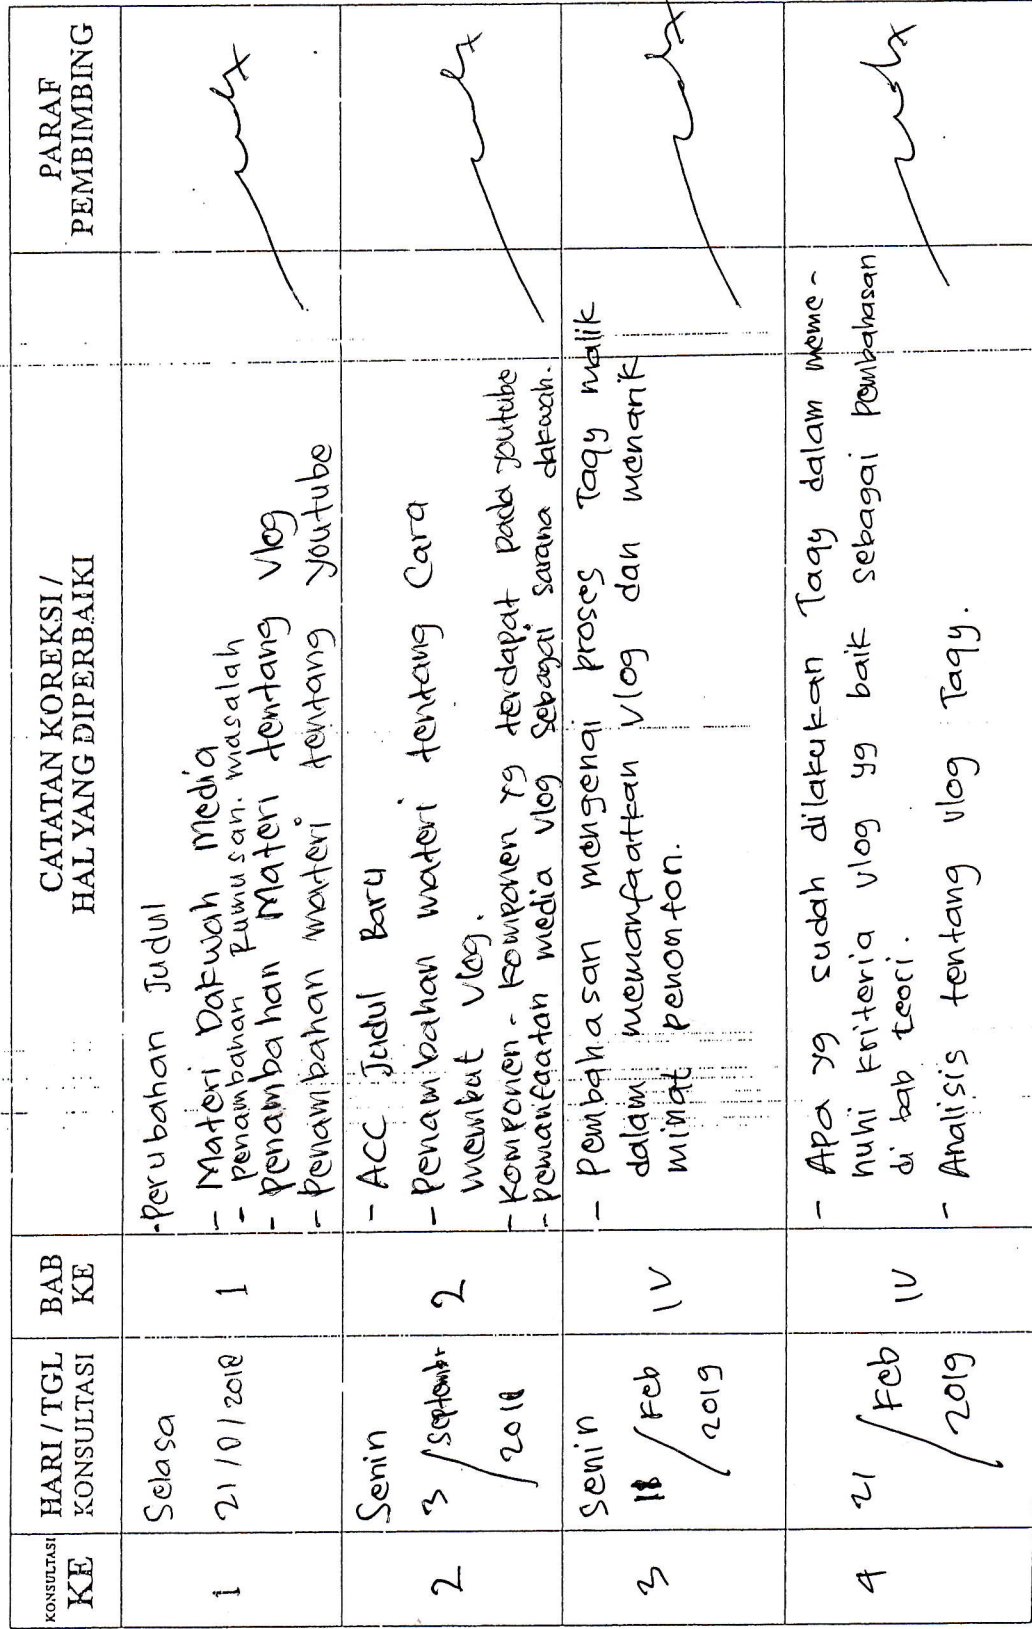 KONSULTASI
KE
HARI / TGL
KONSULTASI
BAB
KE
CATATAN KOREKSI /
HAL YANG DIPERBAIKI
PARAF
PEMBIMBING
1
Selasa
21 / 8 / 2018
1
- Perubahan Judul
- Materi Dakwah Media
- Penambahan Rumusan masalah
- Penambahan Materi tentang Vlog
- Penambahan materi tentang youtube
2
Senin
3 / September
/ 2018
2
- ACC Judul Baru
- Penambahan materi tentang Cara
membuat vlog.
- Komponen - komponen yg terdapat pada youtube
- Pemanfaatan media vlog sebagai sarana dakwah.
3
Senin
18 / Feb
2019
IV
- Pembahasan mengenai proses Taqy malik
dalam memanfaatkan vlog dan menarik
minat penonton.
4
21 / Feb
2019
IV
- Apa yg sudah dilakukan Taqy dalam meme-
nuhi kriteria vlog yg baik sebagai pembahasan
di bab teori.
- Analisis tentang vlog Taqy.